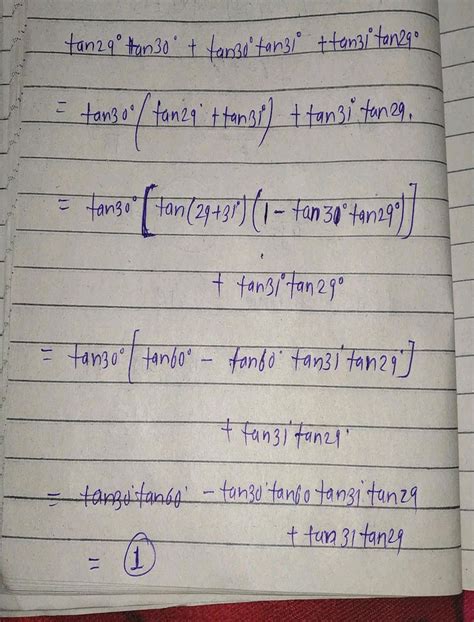 tan29° tan30° + tan30° tan31° + tan31° tan29°
= tan30° (tan29° + tan31°) + tan31° tan29.
= tan30° [tan(29+31°) (1 - tan30° tan29°)]
+ tan31° tan29°
= tan30° [tan60° - tan60° tan31° tan29°]
+ tan31° tan29°
= tan30° tan60° - tan30° tan60 tan31° tan29
+ tan31 tan29
= 1